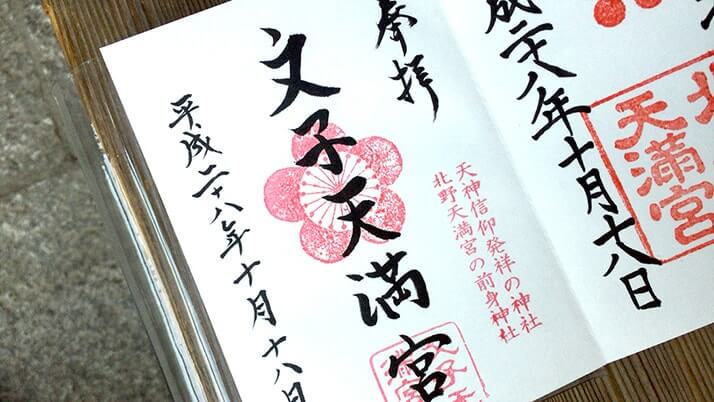 天満宮
成二十八年十月十八日
奉拝
天神信仰発祥の神社
北野天満宮の前身神社
文子天満宮
平成二十八年十月十八日